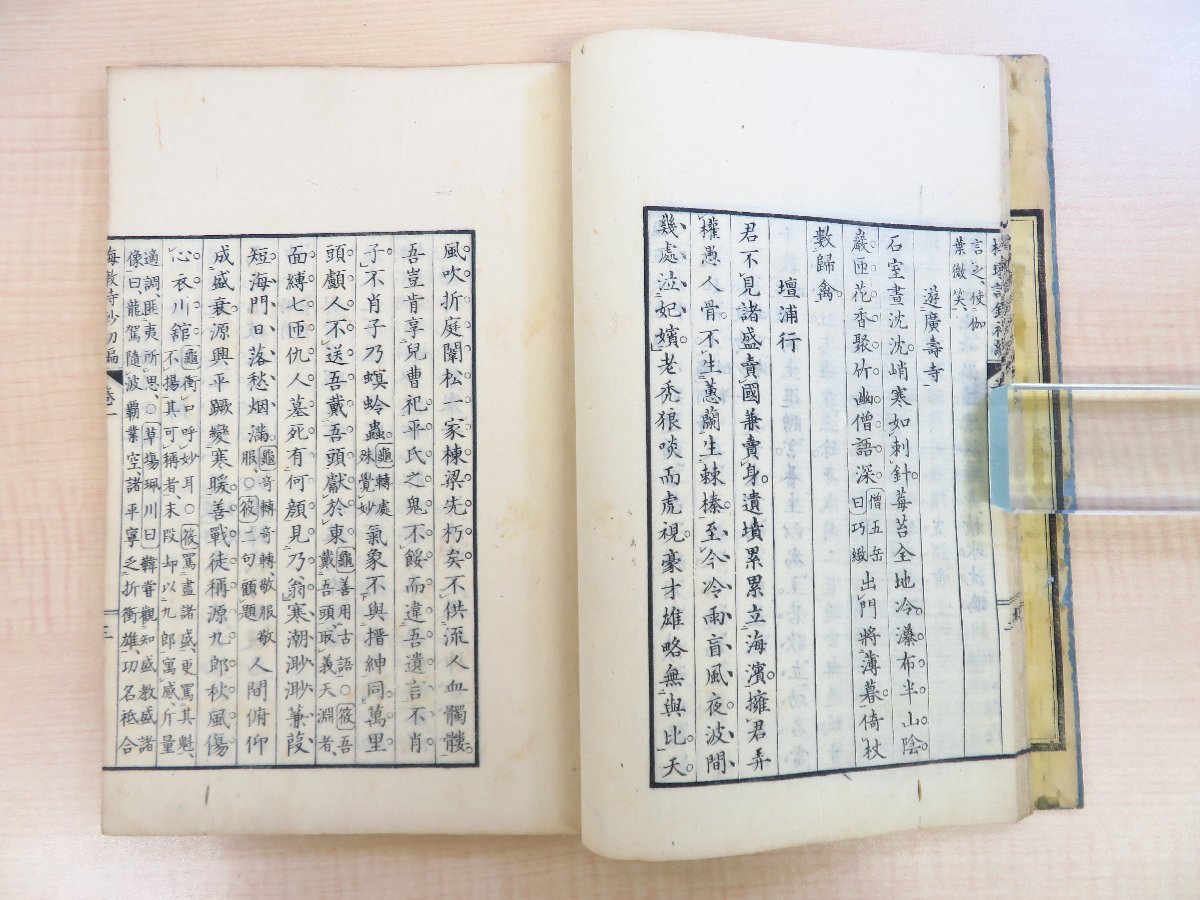 言之、彼伽
葉微笑、
遊廣壽寺
石室晝沈沈峭寒如刺針莓苔全地冷瀑布半山陰
巖匝花香聚竹幽僧語深僧五岳曰巧緻出門將薄暮倚杖
數歸禽
壇浦行
君不見諸盛賣國兼賣身遺墳累累立海濱擁君弄
權愚人骨不生蕙蘭生棘榛至今冷雨盲風夜波間
幾處泣妃嬪老禿狼啖而虎視豪才雄略無與比天
風吹折庭闈松一家棟梁先朽矣不供流人血髑髏
吾豈肯享兒曹祀平氏之鬼不餒而違吾遺言不肖
子不肖子乃螟蛉蟲龜轉處殊覺妙氣象不與搢紳同萬里
頭顱人不送吾戴吾頭獻於東龜善用古語○筱吾戴吾頭取義天淵者、
面縛七匝仇人墓死有何顔見乃翁寒潮渺渺蒹葭
短海門日落愁烟滿龜奇轉奇轉、敬服敬服、○筱二句顧題人間俯仰
成盛衰源興平蹶變寒暖善戰徒稱源九郎秋風傷
心衣川舘龜衡口呼妙耳○筱罵盡諸盛、更罵其魁、不揚其可稱者、末段却以九郎寓感、斤量
適調、匪夷所思、○草塲珮川曰韓嘗觀知盛教盛諸
像曰、龍駕隨波覇業空、諸平寧乏折衝雄、功名祗合